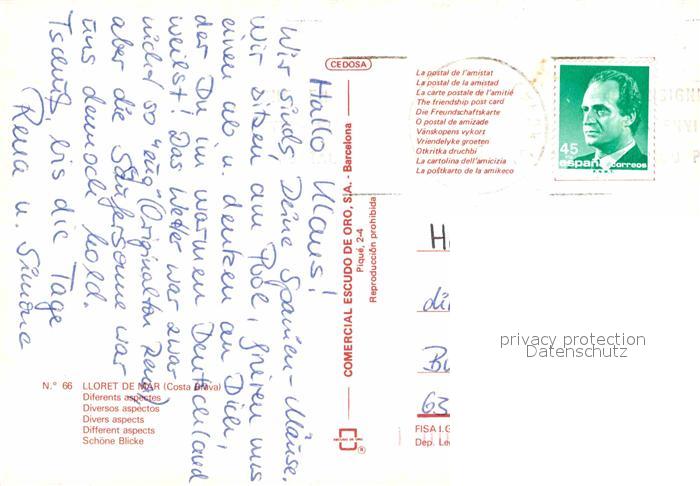 Hallo Klaus!
Wir sinds, Deine Spanien-Mäuse.
Wir sitzen am Pool, frieren uns
einen ab u. denken an Dich,
der Du im warmen Deutschland
weilst! Das Wetter war zwar
nicht so "aug" (Originalton Rena)
aber die Sängersonne war
uns dennoch hold.
Tschüß, bis die Tage
Rena u. Simone
CEDOSA
La postal de l'amistat
La postal de la amistad
La carte postale de l'amitié
The friendship post card
Die Freundschaftskarte
O postal de amizade
Vänskopens vykort
Vriendelyke groeten
Otkritka druchbi
La cartolina dell'amicizia
La poŝtkarto de la amikeco
45
PTA
españa correos
COMERCIAL ESCUDO DE ORO, S.A. - Barcelona
Piqué, 2-4
Reproducción prohibida
H
di
Bu
63
privacy protection
Datenschutz
N.° 66 LLORET DE MAR (Costa Brava)
Diferents aspectes
Diversos aspectos
Divers aspects
Different aspects
Schöne Blicke
ESCUDO DE ORO
®
FISA I.G
Dep. Le